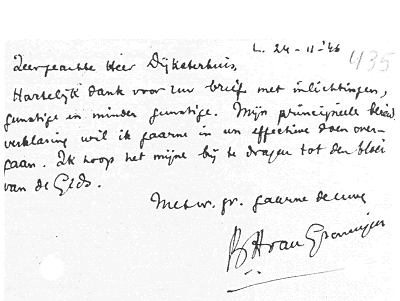 L. 24-11-'46
435
Zeergeachte Heer Dijksterhuis,
Hartelijk dank voor uw brief met inlichtingen,
gunstige en minder gunstige. Mijn principieele bereid-
verklaring wil ik gaarne in un effectieve doen over-
gaan. Ik hoop het mijne bij te dragen tot den bloei
van de Gids.
Met vr. gr. gaarne de uwe
BAvan Groningen